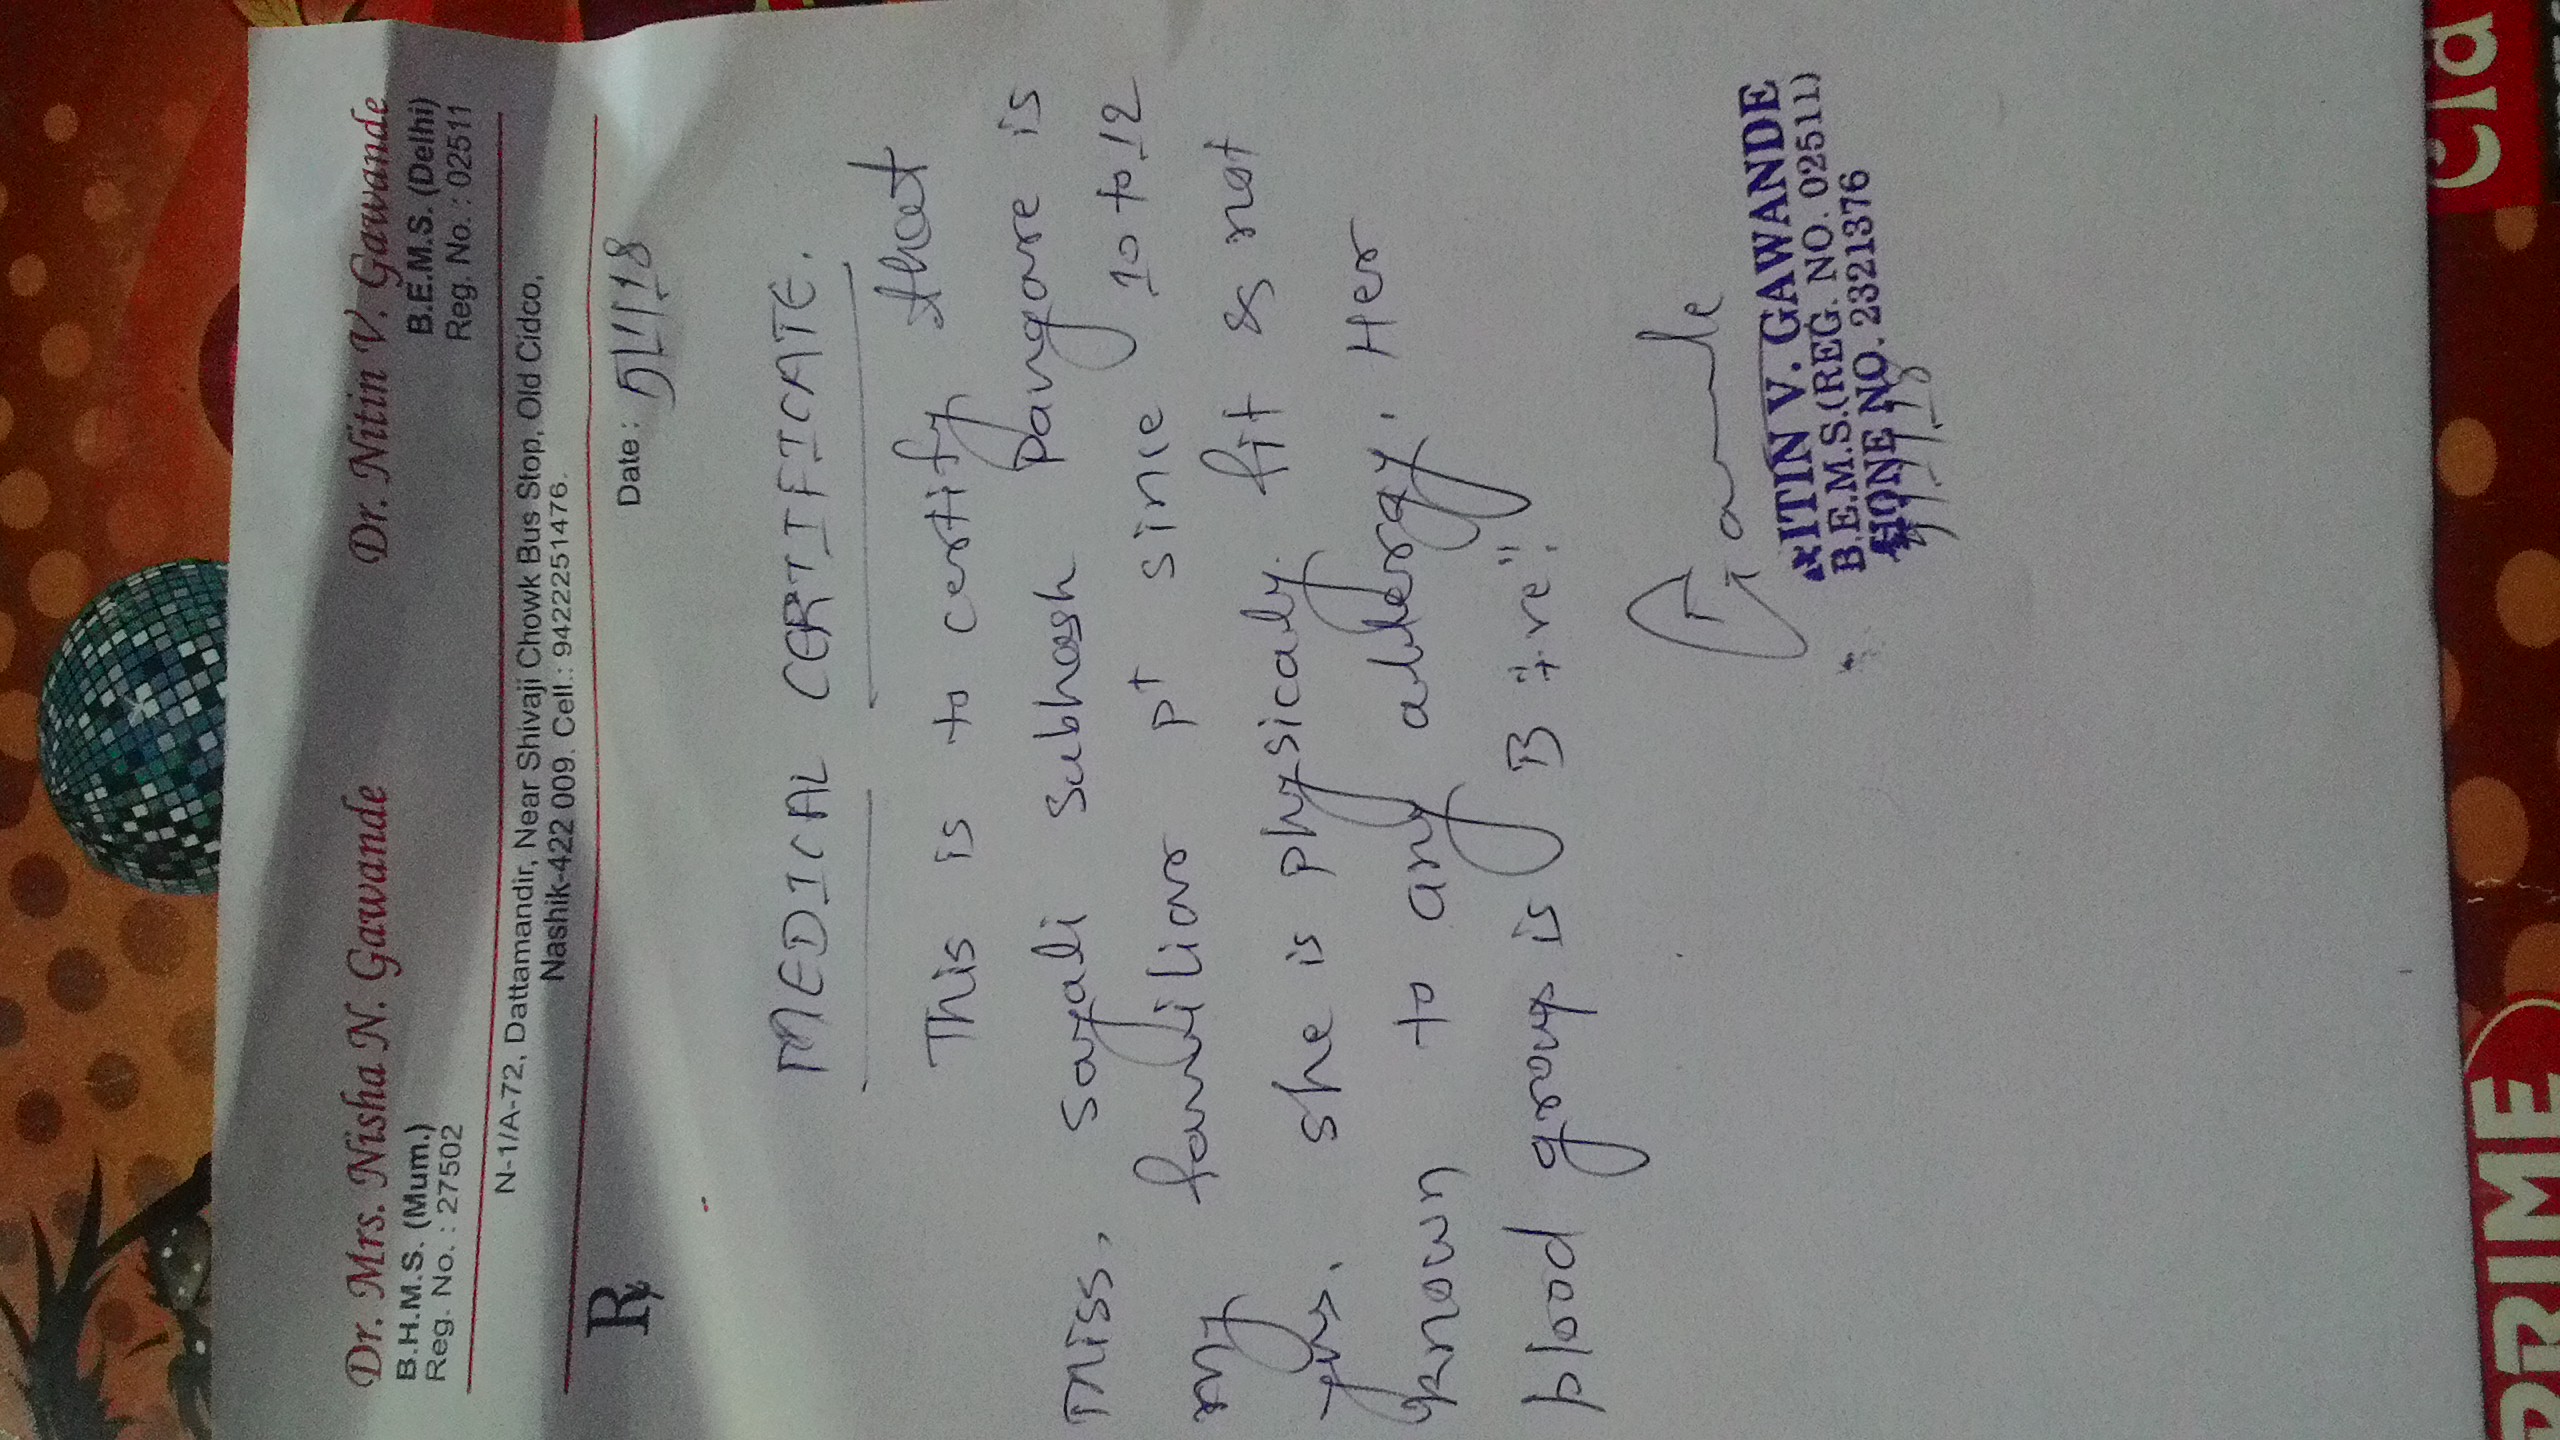 Dr. Mrs. Nisha N. Gawande Dr. Nitin V. Gawande
B.H.M.S. (Mum.) B.E.M.S. (Delhi)
Reg. No. : 27502 Reg. No. : 02511
N-1/A-72, Dattamandir, Near Shivaji Chowk Bus Stop, Old Cidco,
Nashik-422 009. Cell.: 9422251476.
Rx Date :
MEDICAL CERTIFICATE.
This is to certify that
Miss. Sayali Subhash Pangare is
my familiar pt since 10 to 12
yrs. She is physically fit & not
known to any allergy. Her
blood group is B "+ve".
ITIN V. GAWANDE
B.E.M.S.(REG. NO. 02511)
HONE NO. 2321376
PRIME
cia